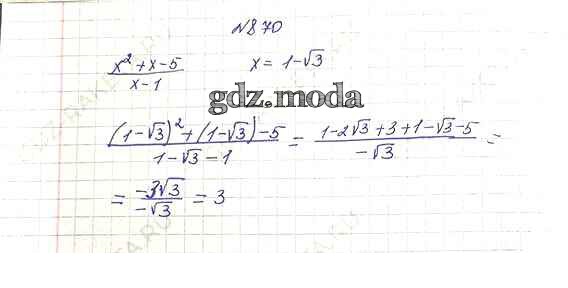 №870
x²+x-5 / x-1   x = 1-√3
gdz.moda
(1-√3)²+(1-√3)-5 / 1-√3-1 = 1-2√3+3+1-√3-5 / -√3 =
= -3√3 / -√3 = 3